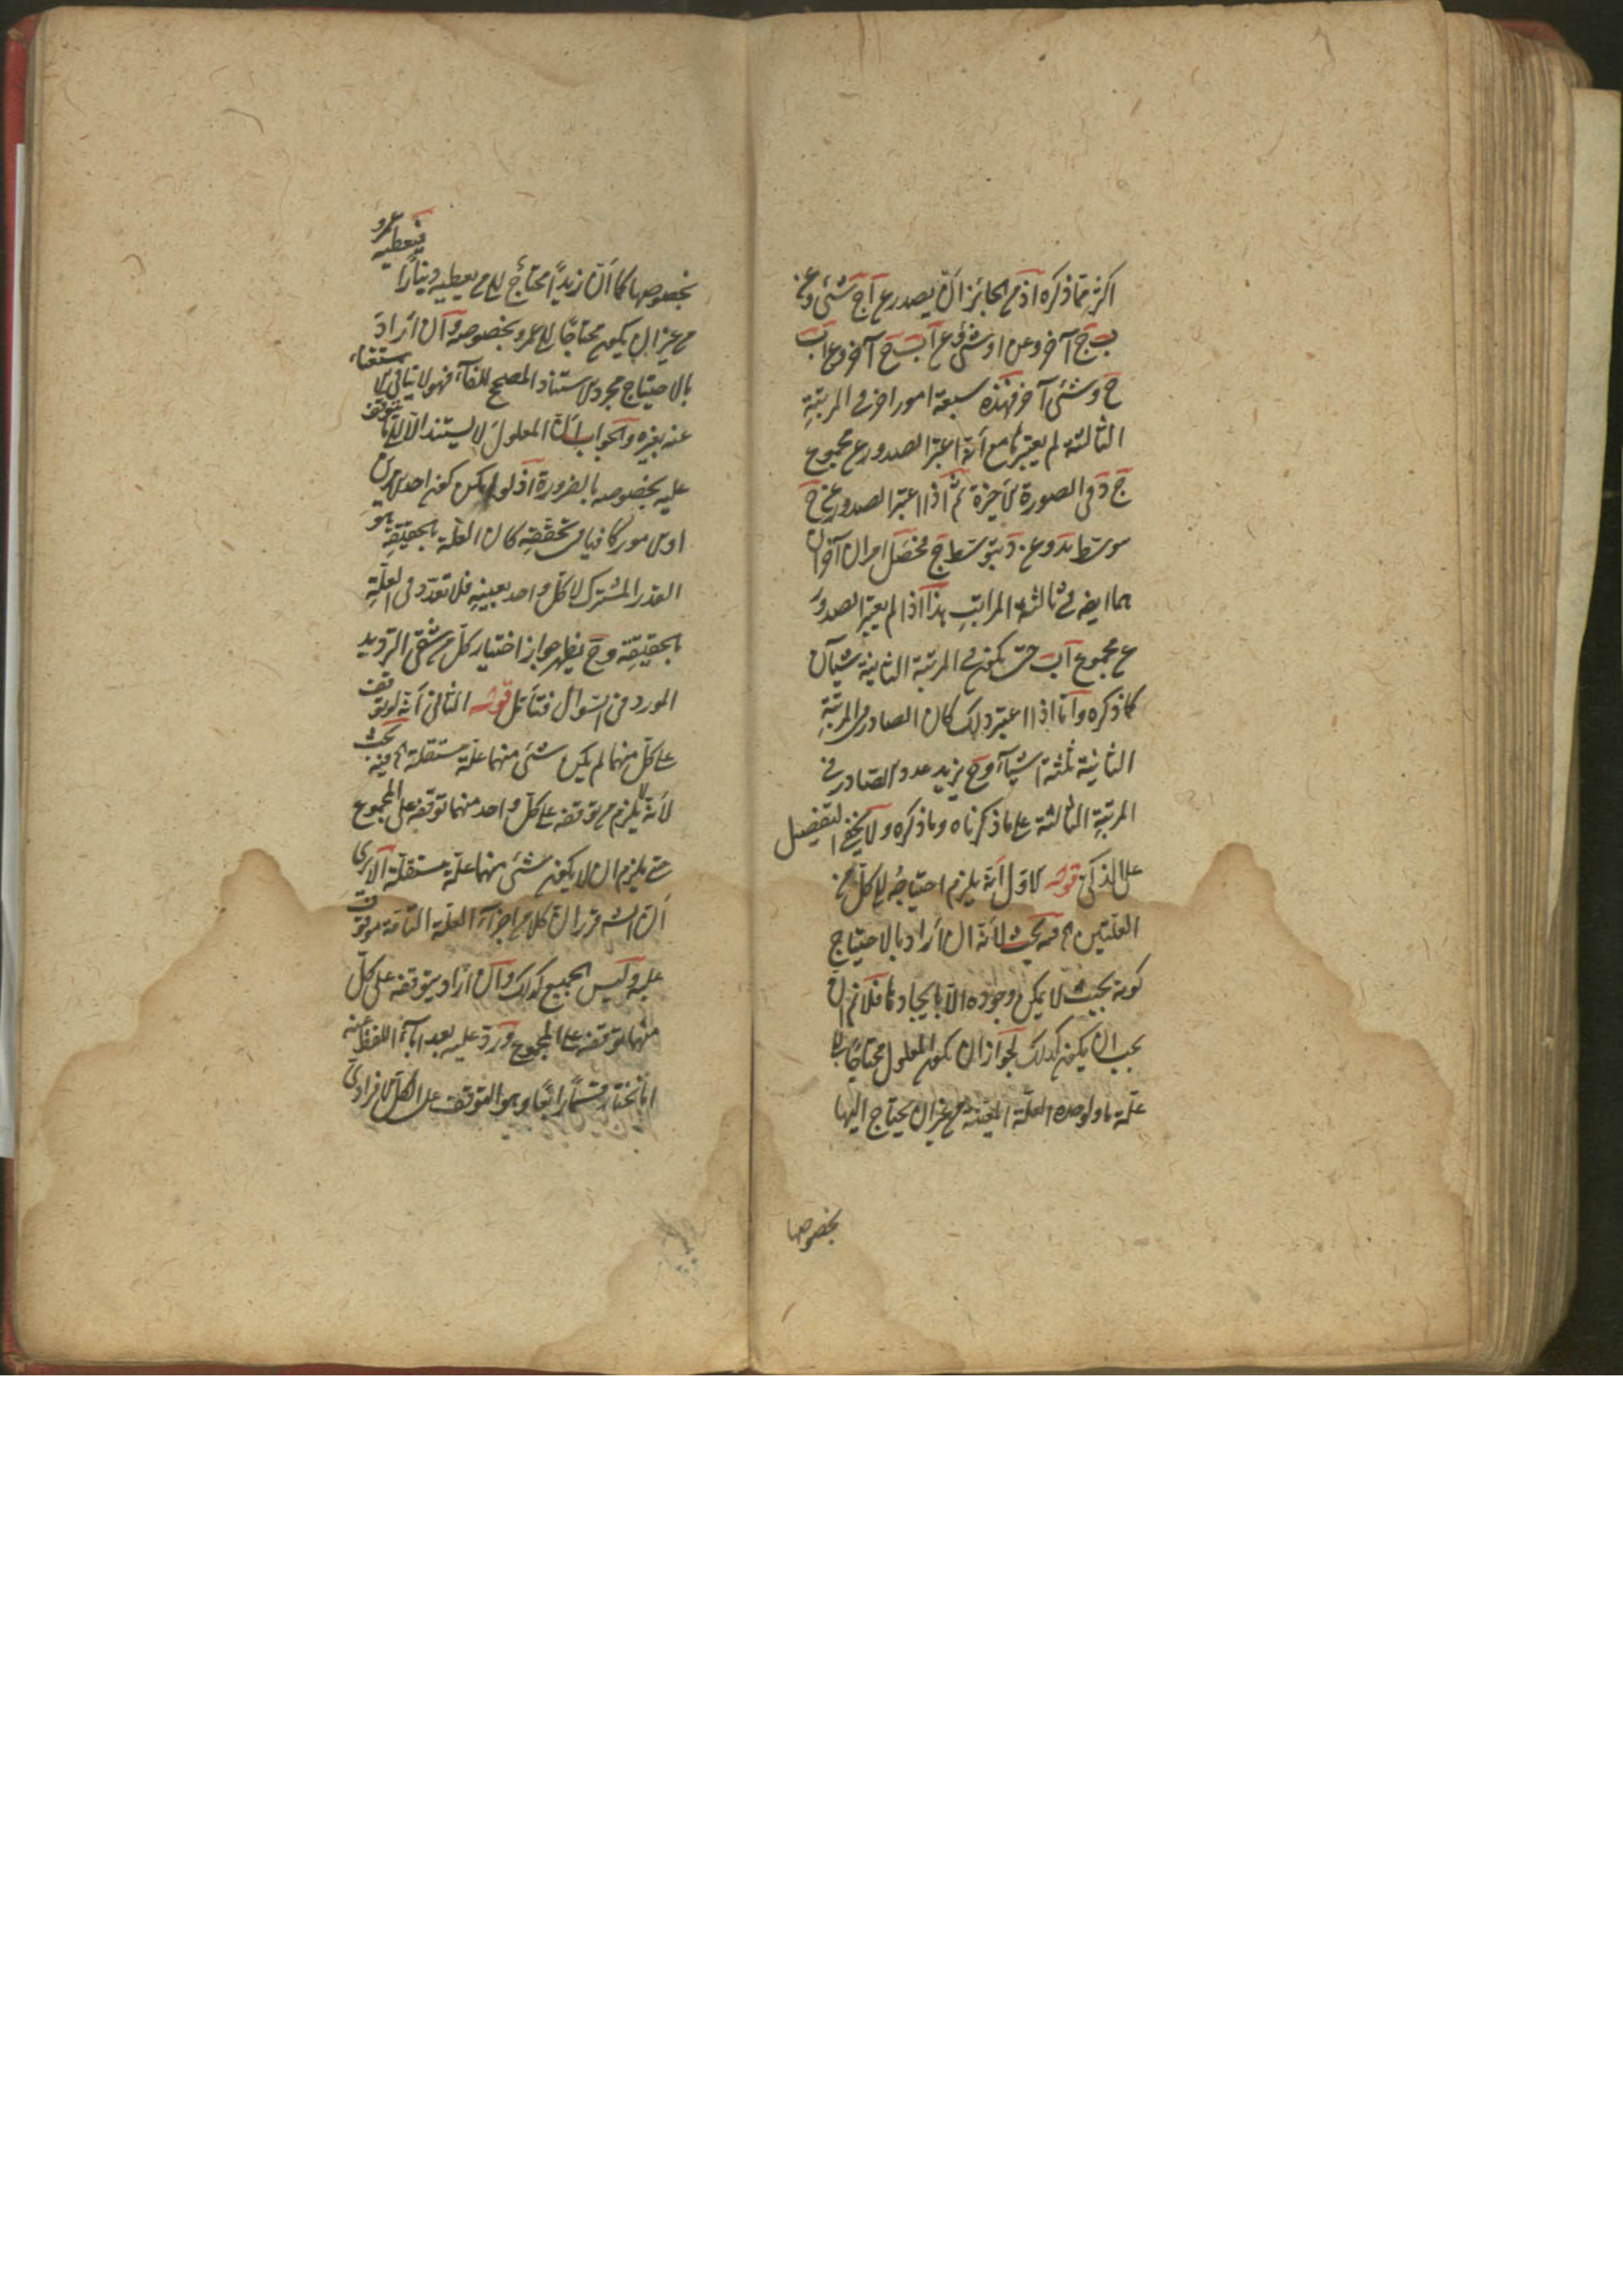 اكثر مما ذكره اذ من الجائز ان يصدر عن آج شئ وعن
ب ج آخر وعن ا د شئ وعن آ ب ج آخر وعن اب
ج د شئ آخر فهذه سبعة امور اخر في المرتبة
الثالثة لم يعتبرها مع أنه اعتبر الصدور عن مجموع
ج د في الصورة الاخيرة ثم اذا اعتبر الصدور عن ج
بتوسط د وعن د بتوسط ج فحصل امران آخران
هما ايضا في ثالثة المراتب هذا اذا لم يعتبر الصدور
عن مجموع آب حتى يكون في المرتبة الثانية شيآن
كما ذكره وأما اذا اعتبر ذلك كان الصادر في المرتبة
الثانية ثلثة اشيآء وح يزيد عدد الصادر في
المرتبة الثالثة على ما ذكرناه وما ذكره ولا يخفى التفصيل
على الذكى قوله الاول أنه يلزم احتياجه الى كل من
العلتين الخ فيه بحث لأنه ان أراد بالاحتياج
كونه بحيث لا يمكن وجوده الا بايجادها فلا نم ان
يجب ان يكون كذلك لجواز ان يكون المعلول محتاجا الى
علة ما ولوجده العلة المعينة من غير ان يحتاج اليها
بخصوصها
فيعطيه عمرو
بخصوصها كما أن زيدا محتاج الى من يعطيه دينارا
من غير ان يكون محتاجا الى عمرو بخصوصه وان أراد
بالاحتياج مجرد الاستناد المصحح للفآء فهو لا ينافي الاستغناء
عنه بغيره والجواب أن المعلول لا يستند الا الى ما يتوقف
عليه بخصوصه بالضرورة اذ لو امكن كون احد الامرين
او الامور كافيا في تحققه كان العلة بالحقيقة هو
القدر المشترك لا كل واحد بعينه فلا تعدد في العلة
بالحقيقة وح يظهر جواز اختيار كل من شقي الترديد
المورد في السؤال فتأمل قوله الثاني أنه لو توقف
على كل منهما لم يكن شئ منهما علة مستقلة الخ فيه بحث
لأنه لا يلزم من توقفه على كل واحد منهما توقفه على المجموع
حتى يلزم ان لا يكون شئ منهما علة مستقلة ألا يرى
أن الش قرر ان كلا من اجزآء العلة التامة موقوف
عليه وليس الجميع كذلك وان اراد بتوقفه على كل
منهما توقفه على المجموع ورد عليه بعد ابآء اللفظ عنه
انا نختار قسما رابعا وهو التوقف على الكل الافرادي